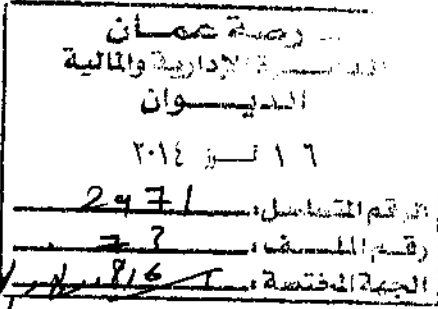 بورصة عمان
الدائرة الإدارية والمالية
الديوان
١٦ تموز ٢٠١٤
الرقم المتسلسل: 2971
رقم الملف:
الجهة المختصة: